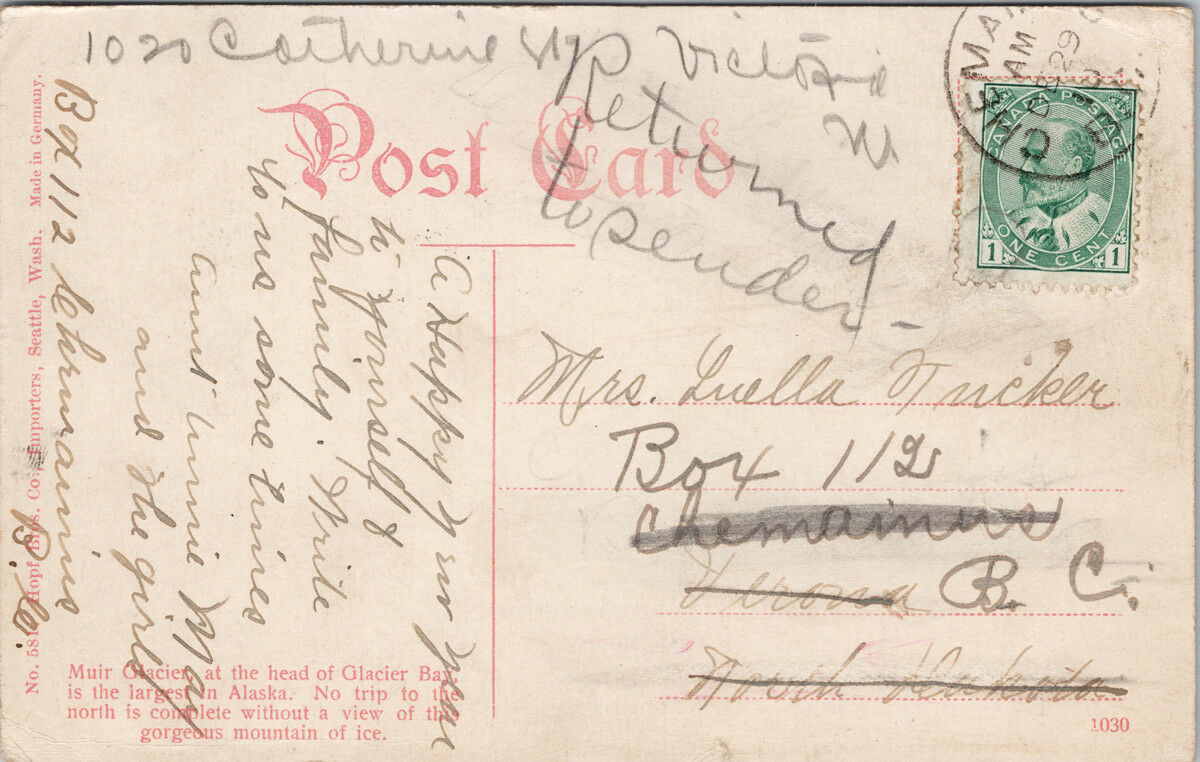 1020 Catherine St Victoria
W.
Returned
to sender -
Post Card
CANADA POSTAGE
1 ONE CENT 1
AM
DE 29
Mrs. Luella Tucker
Box 112
Chemainus
Verona B. C.
North Dakota
A Happy New Year
to yourself &
family. Write
to us some times
Aunt Annie May
and the girls
Box 112 Chemainus
B. C.
No. 581 Hopf Bros. Co. Importers, Seattle, Wash. Made in Germany.
Muir Glacier, at the head of Glacier Bay
is the largest in Alaska. No trip to the
north is complete without a view of this
gorgeous mountain of ice.
1030